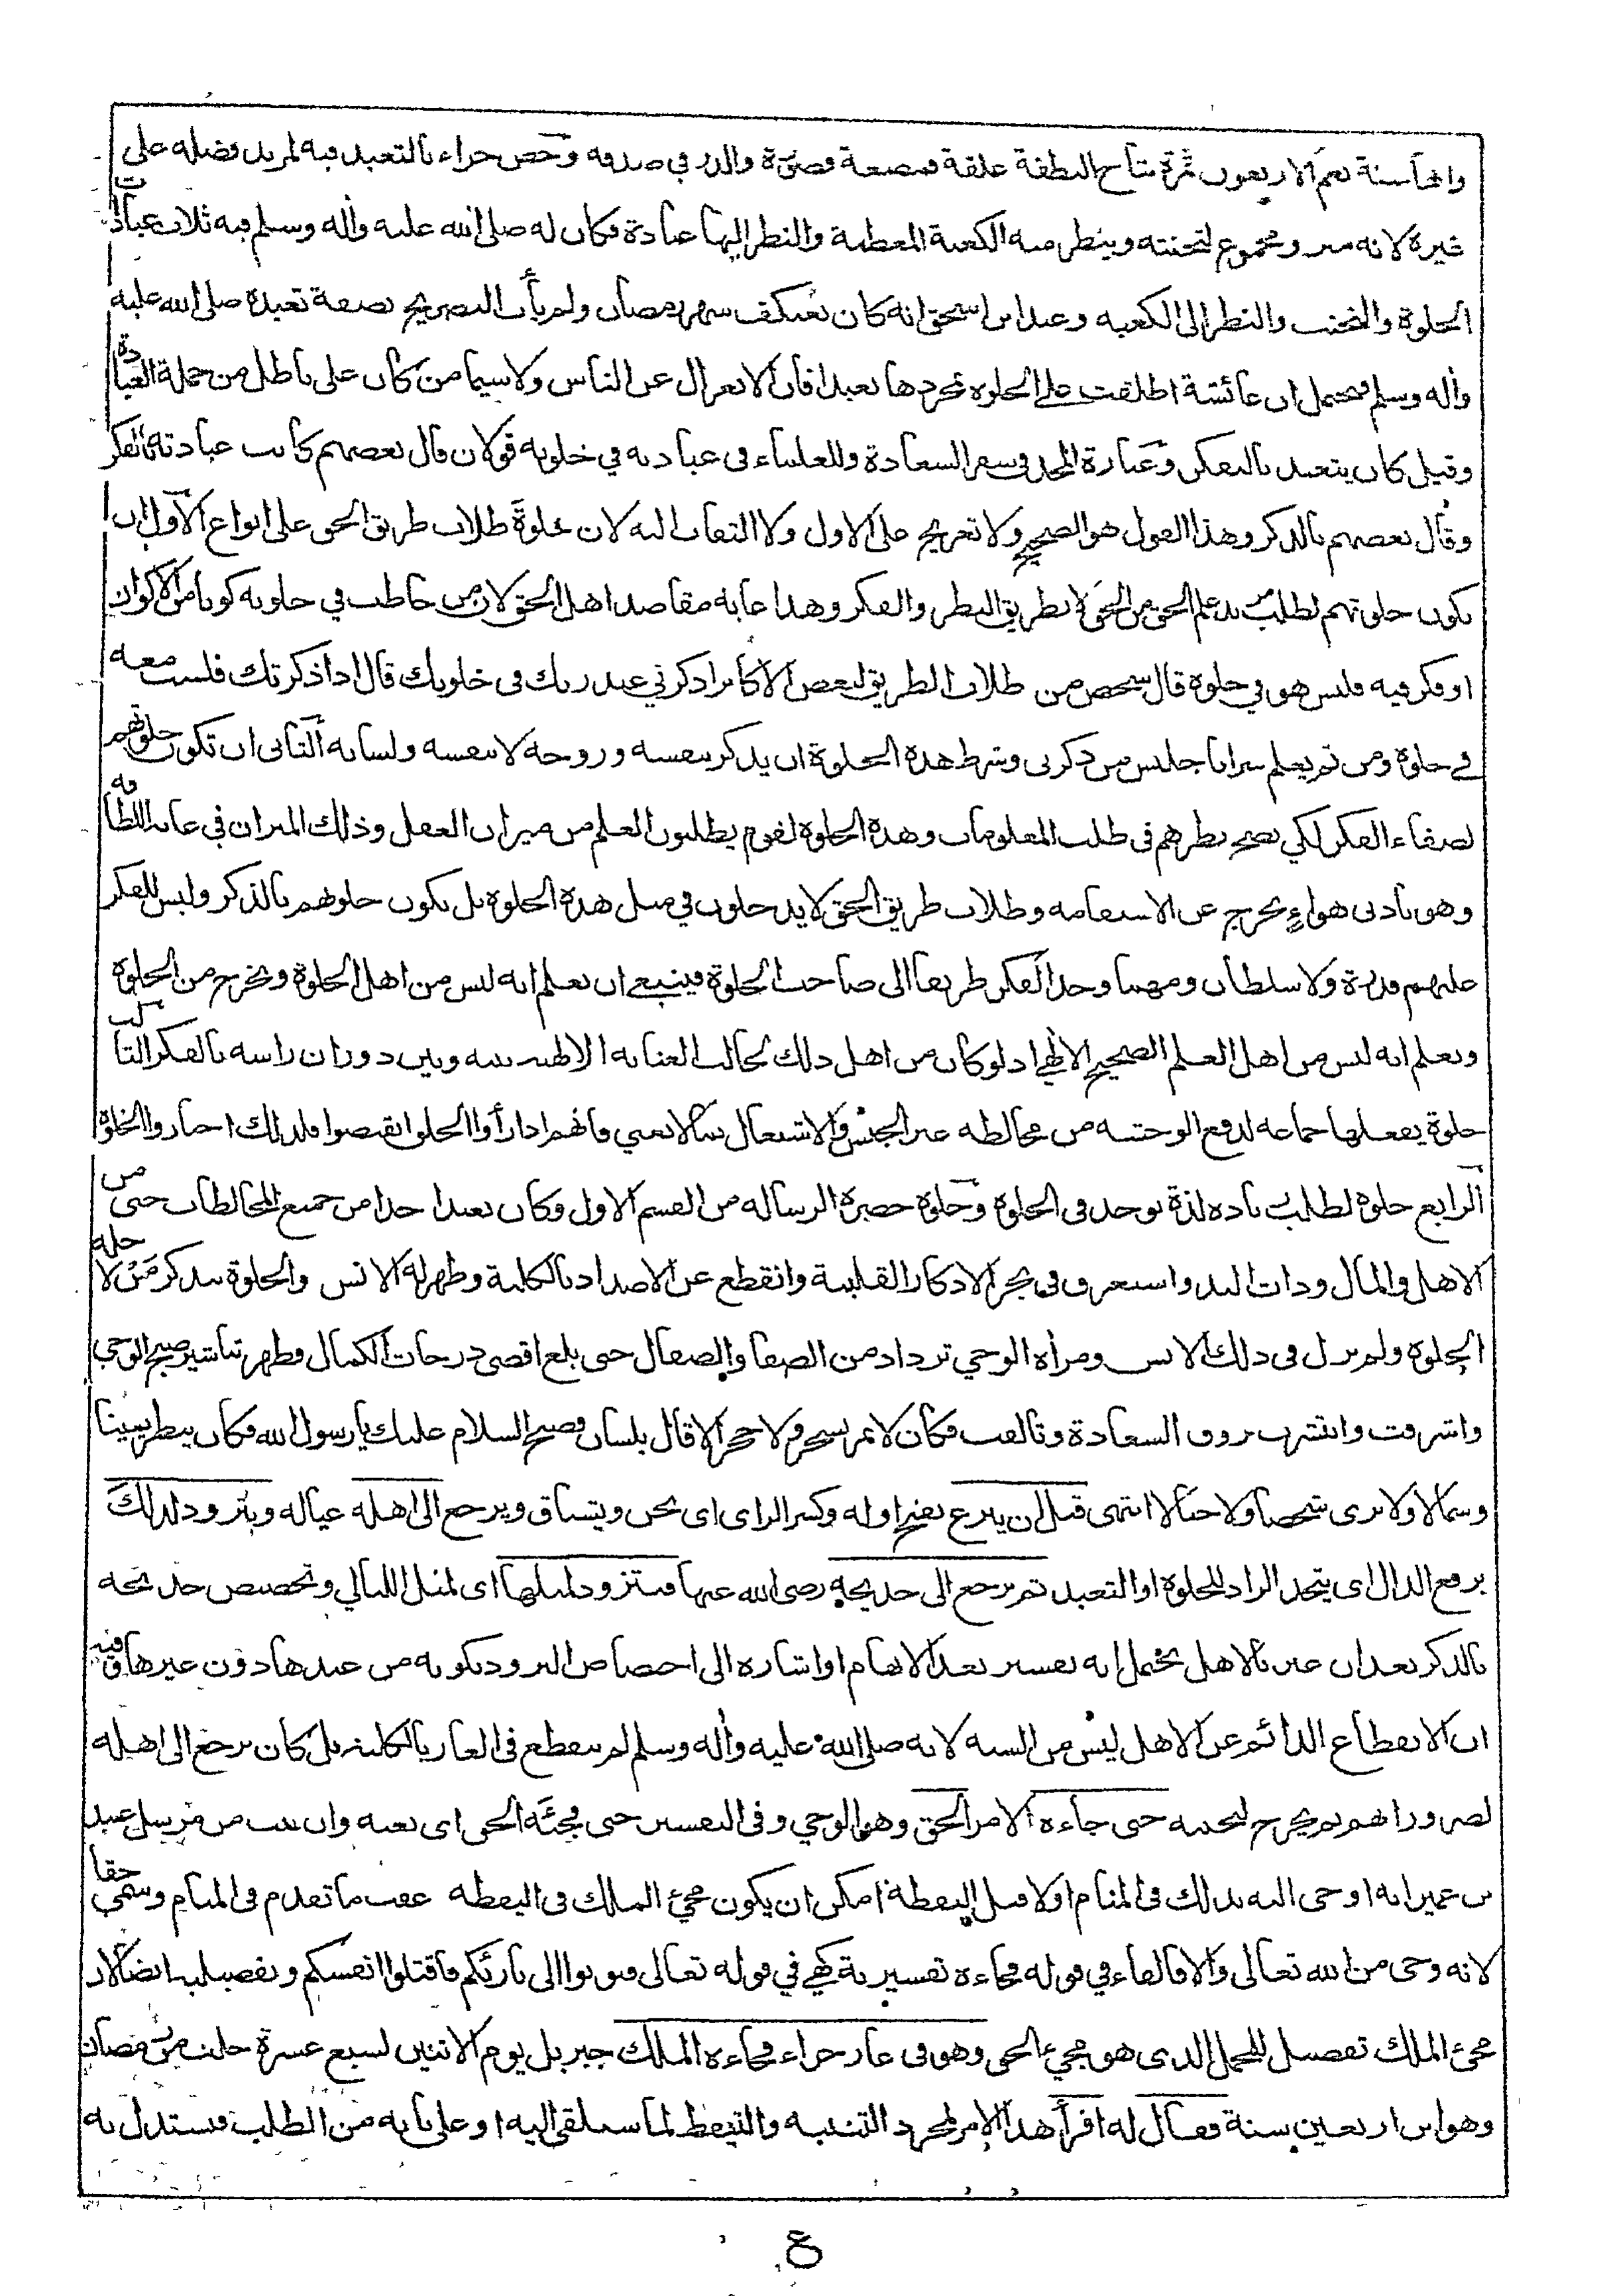 وانها سنة نعم الاربعون ثمرة نتاج النطفة علقة فمضغة فصورة والدر في صدفه وخص حراء بالتعبد فيه لمزيد فضله على
غيره لانه منزو مجموع لتحنثه وينظر منه الكعبة المعظمة والنظر اليها عبادة فكان له صلى الله عليه وآله وسلم فيه ثلاث عبادات
الخلوة والتحنث والنظر الى الكعبه وعند ابن اسحق انه كان يعتكف شهر رمضان ولم يأت التصريح بصفة تعبده صلى الله عليه
وآله وسلم فيحتمل ان عائشة اطلقت على الخلوه بمجردها تعبدا فان الانعزال عن الناس ولاسيما من كان على باطل من جملة العبادة
وقيل كان يتعبد بالتفكر وعبارة المجد في سفر السعادة وللعلماء في عبادته في خلوته قولان قال بعضهم كانت عبادته بالتفكر
وقال بعضهم بالذكر وهذا القول هو الصحيح ولا تعريج على الاول ولا التفات اليه لان خلوة طلاب طريق الحق على انواع الاول ان
تكون خلوتهم لطلب مزيد علم الحق من الحق لا بطريق النظر والفكر وهذا غاية مقاصد اهل الحق لان من خاطب في خلوته كونا من الاكوان
او فكر فيه فليس هو في خلوة قال شخص من طلاب الطريق لبعض الاكابر اذكرني عند ربك في خلوتك قال اذا ذكرتك فلست معه
في خلوة ومن ثم يعلم سر انا جليس من ذكرني وشرط هذه الخلوة ان يذكر بنفسه وروحه لا بنفسه ولسانه الثاني ان تكون خلوتهم
لصفاء الفكر لكي يصح نظرهم في طلب المعلومات وهذه الخلوة لقوم يطلبون العلم من ميزان العقل وذلك الميزان في غاية اللطافه
وهو بادنى هواء يخرج عن الاستقامه وطلاب طريق الحق لا يدخلون في مثل هذه الخلوة بل تكون خلوتهم بالذكر وليس للفكر
عليهم قدرة ولا سلطان ومهما وجد الفكر طريقا الى صاحب الخلوة فينبغي ان يعلم انه ليس من اهل الخلوة ويخرج من الخلوة
ويعلم انه ليس من اهل العلم الصحيح الالهي اذ لو كان من اهل ذلك لحالت العناية الالهية بينه وبين دوران راسه بالفكر الثالث
خلوة يفعلها جماعه لدفع الوحشه من مخالطة غير الجنس والاشتغال بما لا يعني فانهم اذا رأوا الخلق انقبضوا فلذلك اختاروا الخلوة
الرابع خلوة لطلب زيادة لذة توجد في الخلوة وخلوة حضرة الرساله من القسم الاول وكان بعيدا جدا من جميع المخالطات حتى من
الاهل والمال وذات اليد واستغرق في بحر الاذكار القلبية وانقطع عن الاضداد بالكلية وظهر له الانس والخلوة بتذكر من لاجله
الخلوة ولم يزل في ذلك الانس ومرآة الوحي تزداد من الصفا والصقال حتى بلغ اقصى درجات الكمال فظهر تباشير صبح الوحي
واشرقت وانتشرت بروق السعادة وتالقت فكان لا يمر بشجر ولا حجر الا قال بلسان فصيح السلام عليك يا رسول الله فكان ينظر يمينا
وشمالا ولا يرى شخصا ولا خيالا انتهى قبل ان ينزع بفتح اوله وكسر الزاى اى يحن ويشتاق ويرجع الى اهله عياله ويتزود لذلك
برفع الدال اى يتخذ الزاد للخلوة او التعبد ثم يرجع الى خديجة رضى الله عنها فيتزود لمثلها اى لمثل الليالي وتخصيص خديجه
بالذكر بعد ان عبر بالاهل يحتمل انه تفسير بعد الابهام او اشاره الى اختصاص التزود بكونه من عندها دون غيرها وفيه
ان الانقطاع الدائم عن الاهل ليس من السنه لانه صلى الله عليه وآله وسلم لم ينقطع في الغار بالكلية بل كان يرجع الى اهله
لضروراتهم ثم يخرج لتحنثه حتى جاءه الامر الحق وهو الوحي وفي التفسير حتى فجئه الحق اى بغته وان ثبت من مرسل عبيد
بن عمير انه اوحى اليه بذلك في المنام اولا قبل اليقظة امكن ان يكون مجئ الملك في اليقظه عقب ما تقدم في المنام وسمي حقا
لانه وحى من الله تعالى والفاء في قوله فجاءه تفسيرية كهي في قوله تعالى فتوبوا الى بارئكم فاقتلوا انفسكم وتفصيلية ايضا لان
مجئ الملك تفصيل للمجمل الذى هو مجيء الحق وهو في غار حراء فجاءه الملك جبريل يوم الاثنين لسبع عشرة خلت من رمضان
وهو ابن اربعين سنة فقال له اقرأ هذا الامر لمجرد التنبيه والتيقظ لما سيلقى اليه او على بابه من الطلب فيستدل به